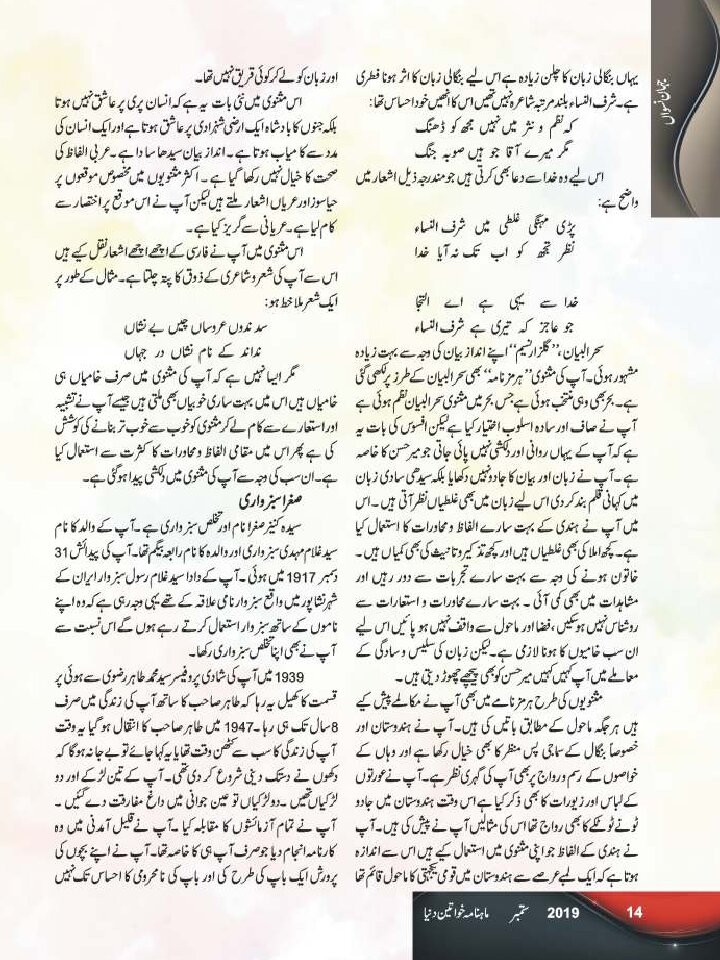 جہان نسواں
یہاں بنگالی زبان کا چلن زیادہ ہے اس لیے بنگالی زبان کا اثر ہونا فطری
ہے۔ شرف النساء بلند مرتبہ شاعرہ نہیں تھیں اس کا انھیں خود احساس تھا:
کہ نظم و نثر میں نہیں مجھ کو ڈھنگ
مگر میرے آقا جو ہیں صوبہ جنگ
اس لیے وہ خدا سے دعا بھی کرتی ہیں جو مندرجہ ذیل اشعار میں
واضح ہے:
پڑی مہنگی غلطی میں شرف النساء
نظر تجھ کو اب تک نہ آیا خدا
خدا سے یہی ہے اے التجا
جو عاجز کہ تیری ہے شرف النساء
سحرالبیان، ”گلزار نسیم“ اپنے انداز بیان کی وجہ سے بہت زیادہ
مشہور ہوئی۔ آپ کی مثنوی ”ہرمز نامہ“ بھی سحرالبیان کے طرز پر لکھی گئی
ہے۔ بحر بھی وہی منتخب ہوئی ہے جس بحر میں مثنوی سحرالبیان نظم ہوئی ہے
آپ نے صاف اور سادہ اسلوب اختیار کیا ہے لیکن افسوس کی بات یہ
ہے کہ آپ کے یہاں روانی اور دلکشی نہیں پائی جاتی جو میر حسن کا خاصہ
ہے۔ آپ نے زبان اور بیان کا جادو نہیں دکھایا بلکہ سیدھی سادی زبان
میں کہانی قلم بند کردی اس لیے زبان میں بھی غلطیاں نظر آتی ہیں۔ اس
میں آپ نے ہندی کے بہت سارے الفاظ و محاورات کا استعمال کیا
ہے۔ کچھ املا کی بھی غلطیاں ہیں اور کچھ تذکیر و تانیث کی بھی کمیاں ہیں۔
خاتون ہونے کی وجہ سے بہت سارے تجربات سے دور رہیں اور
مشاہدات میں بھی کمی آئی۔ بہت سارے محاورات و استعارات سے
روشناس نہیں ہوسکیں، فضا اور ماحول سے واقف نہیں ہو پائیں اس لیے
ان سب خامیوں کا ہونا لازمی ہے۔ لیکن زبان کی سلیس و سادگی کے
معاملے میں آپ کہیں کہیں میر حسن کو بھی پیچھے چھوڑ دیتی ہیں۔
مثنویوں کی طرح ہرمز نامے میں بھی آپ نے مکالمے پیش کیے
ہیں ہر جگہ ماحول کے مطابق باتیں کی ہیں۔ آپ نے ہندوستان اور
خصوصاً بنگال کے سماجی پس منظر کا بھی خیال رکھا ہے اور وہاں کے
خواصوں کے رسم و رواج پر بھی آپ کی گہری نظر ہے۔ آپ نے عورتوں
کے لباس اور زیورات کا بھی ذکر کیا ہے اس وقت ہندوستان میں جادو
ٹونے ٹوٹکے کا بھی رواج تھا اس کی مثالیں آپ نے پیش کی ہیں۔ آپ
نے ہندی کے الفاظ جو اپنی مثنوی میں استعمال کیے ہیں اس سے اندازہ
ہوتا ہے کہ ایک لمبے عرصے سے ہندوستان میں قومی یکجہتی کا ماحول قائم تھا
اور زبان کو لے کر کوئی تفریق نہیں تھا۔
اس مثنوی میں نئی بات یہ ہے کہ انسان پری پر عاشق نہیں ہوتا
بلکہ جنوں کا بادشاہ ایک ارضی شہزادی پر عاشق ہوتا ہے اور ایک انسان کی
مدد سے کامیاب ہوتا ہے۔ انداز بیان سیدھا سادا ہے۔ عربی الفاظ کی
صحت کا خیال نہیں رکھا گیا ہے۔ اکثر مثنویوں میں مخصوص موقعوں پر
حیا سوز اور عریاں اشعار ملتے ہیں لیکن آپ نے اس موقع پر اختصار سے
کام لیا ہے۔ عریانی سے گریز کیا ہے۔
اس مثنوی میں آپ نے فارسی کے اچھے اچھے اشعار نقل کیے ہیں
اس سے آپ کی شعر و شاعری کے ذوق کا پتہ چلتا ہے۔ مثال کے طور پر
ایک شعر ملاحظہ ہو:
سدندوں عروساں چیں بے نشاں
نداند کے نام نشاں در جہاں
مگر ایسا نہیں ہے کہ آپ کی مثنوی میں صرف خامیاں ہی
خامیاں ہیں اس میں بہت ساری خوبیاں بھی ملتی ہیں جیسے آپ نے تشبیہ
اور استعارے سے کام لے کر مثنوی کو خوب سے خوب تر بنانے کی کوشش
کی ہے پھر اس میں مقامی الفاظ و محاورات کا کثرت سے استعمال کیا
ہے۔ ان سب کی وجہ سے آپ کی مثنوی میں دلکشی پیدا ہوگئی ہے۔
صغرا سبزواری
سیدہ کنیز صغرا نام اور تخلص سبزواری ہے۔ آپ کے والد کا نام
سید غلام مہدی سبزواری اور والدہ کا نام رابعہ بیگم تھا۔ آپ کی پیدائش 31
دسمبر 1917 میں ہوئی۔ آپ کے دادا سید غلام رسول سبزوار ایران کے
شہر نیشاپور میں واقع سبزوار نامی علاقہ کے تھے یہی وجہ رہی ہے کہ وہ اپنے
ناموں کے ساتھ سبزوار استعمال کرتے رہے ہوں گے اس نسبت سے
آپ نے بھی اپنا تخلص سبزواری رکھا۔
1939 میں آپ کی شادی پروفیسر سید محمد طاہر رضوی سے ہوئی پر
قسمت کا کھیل یہ رہا کہ طاہر صاحب کا ساتھ آپ کی زندگی میں صرف
8 سال تک ہی رہا۔ 1947 میں طاہر صاحب کا انتقال ہوگیا یہ وقت
آپ کی زندگی کا سب سے کٹھن وقت تھا یا یہ کہا جائے تو بے جا نہ ہوگا کہ
دکھوں نے دستک دینی شروع کردی تھی۔ آپ کے تین لڑکے اور دو
لڑکیاں تھیں۔ دو لڑکیاں تو عین جوانی میں داغ مفارقت دے گئیں۔
آپ نے تمام آزمائشوں کا مقابلہ کیا۔ آپ نے قلیل آمدنی میں وہ
کارنامہ انجام دیا جو صرف آپ ہی کا خاصہ تھا۔ آپ نے اپنے بچوں کی
پرورش ایک باپ کی طرح کی اور باپ کی نا محرومی کا احساس تک نہیں
ماہنامہ خواتین دنیا ستمبر 2019 14